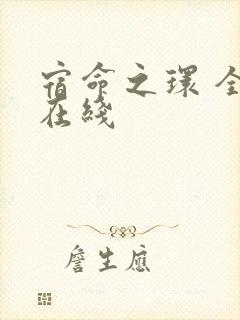 宿命之環 全
在綫
詹生應